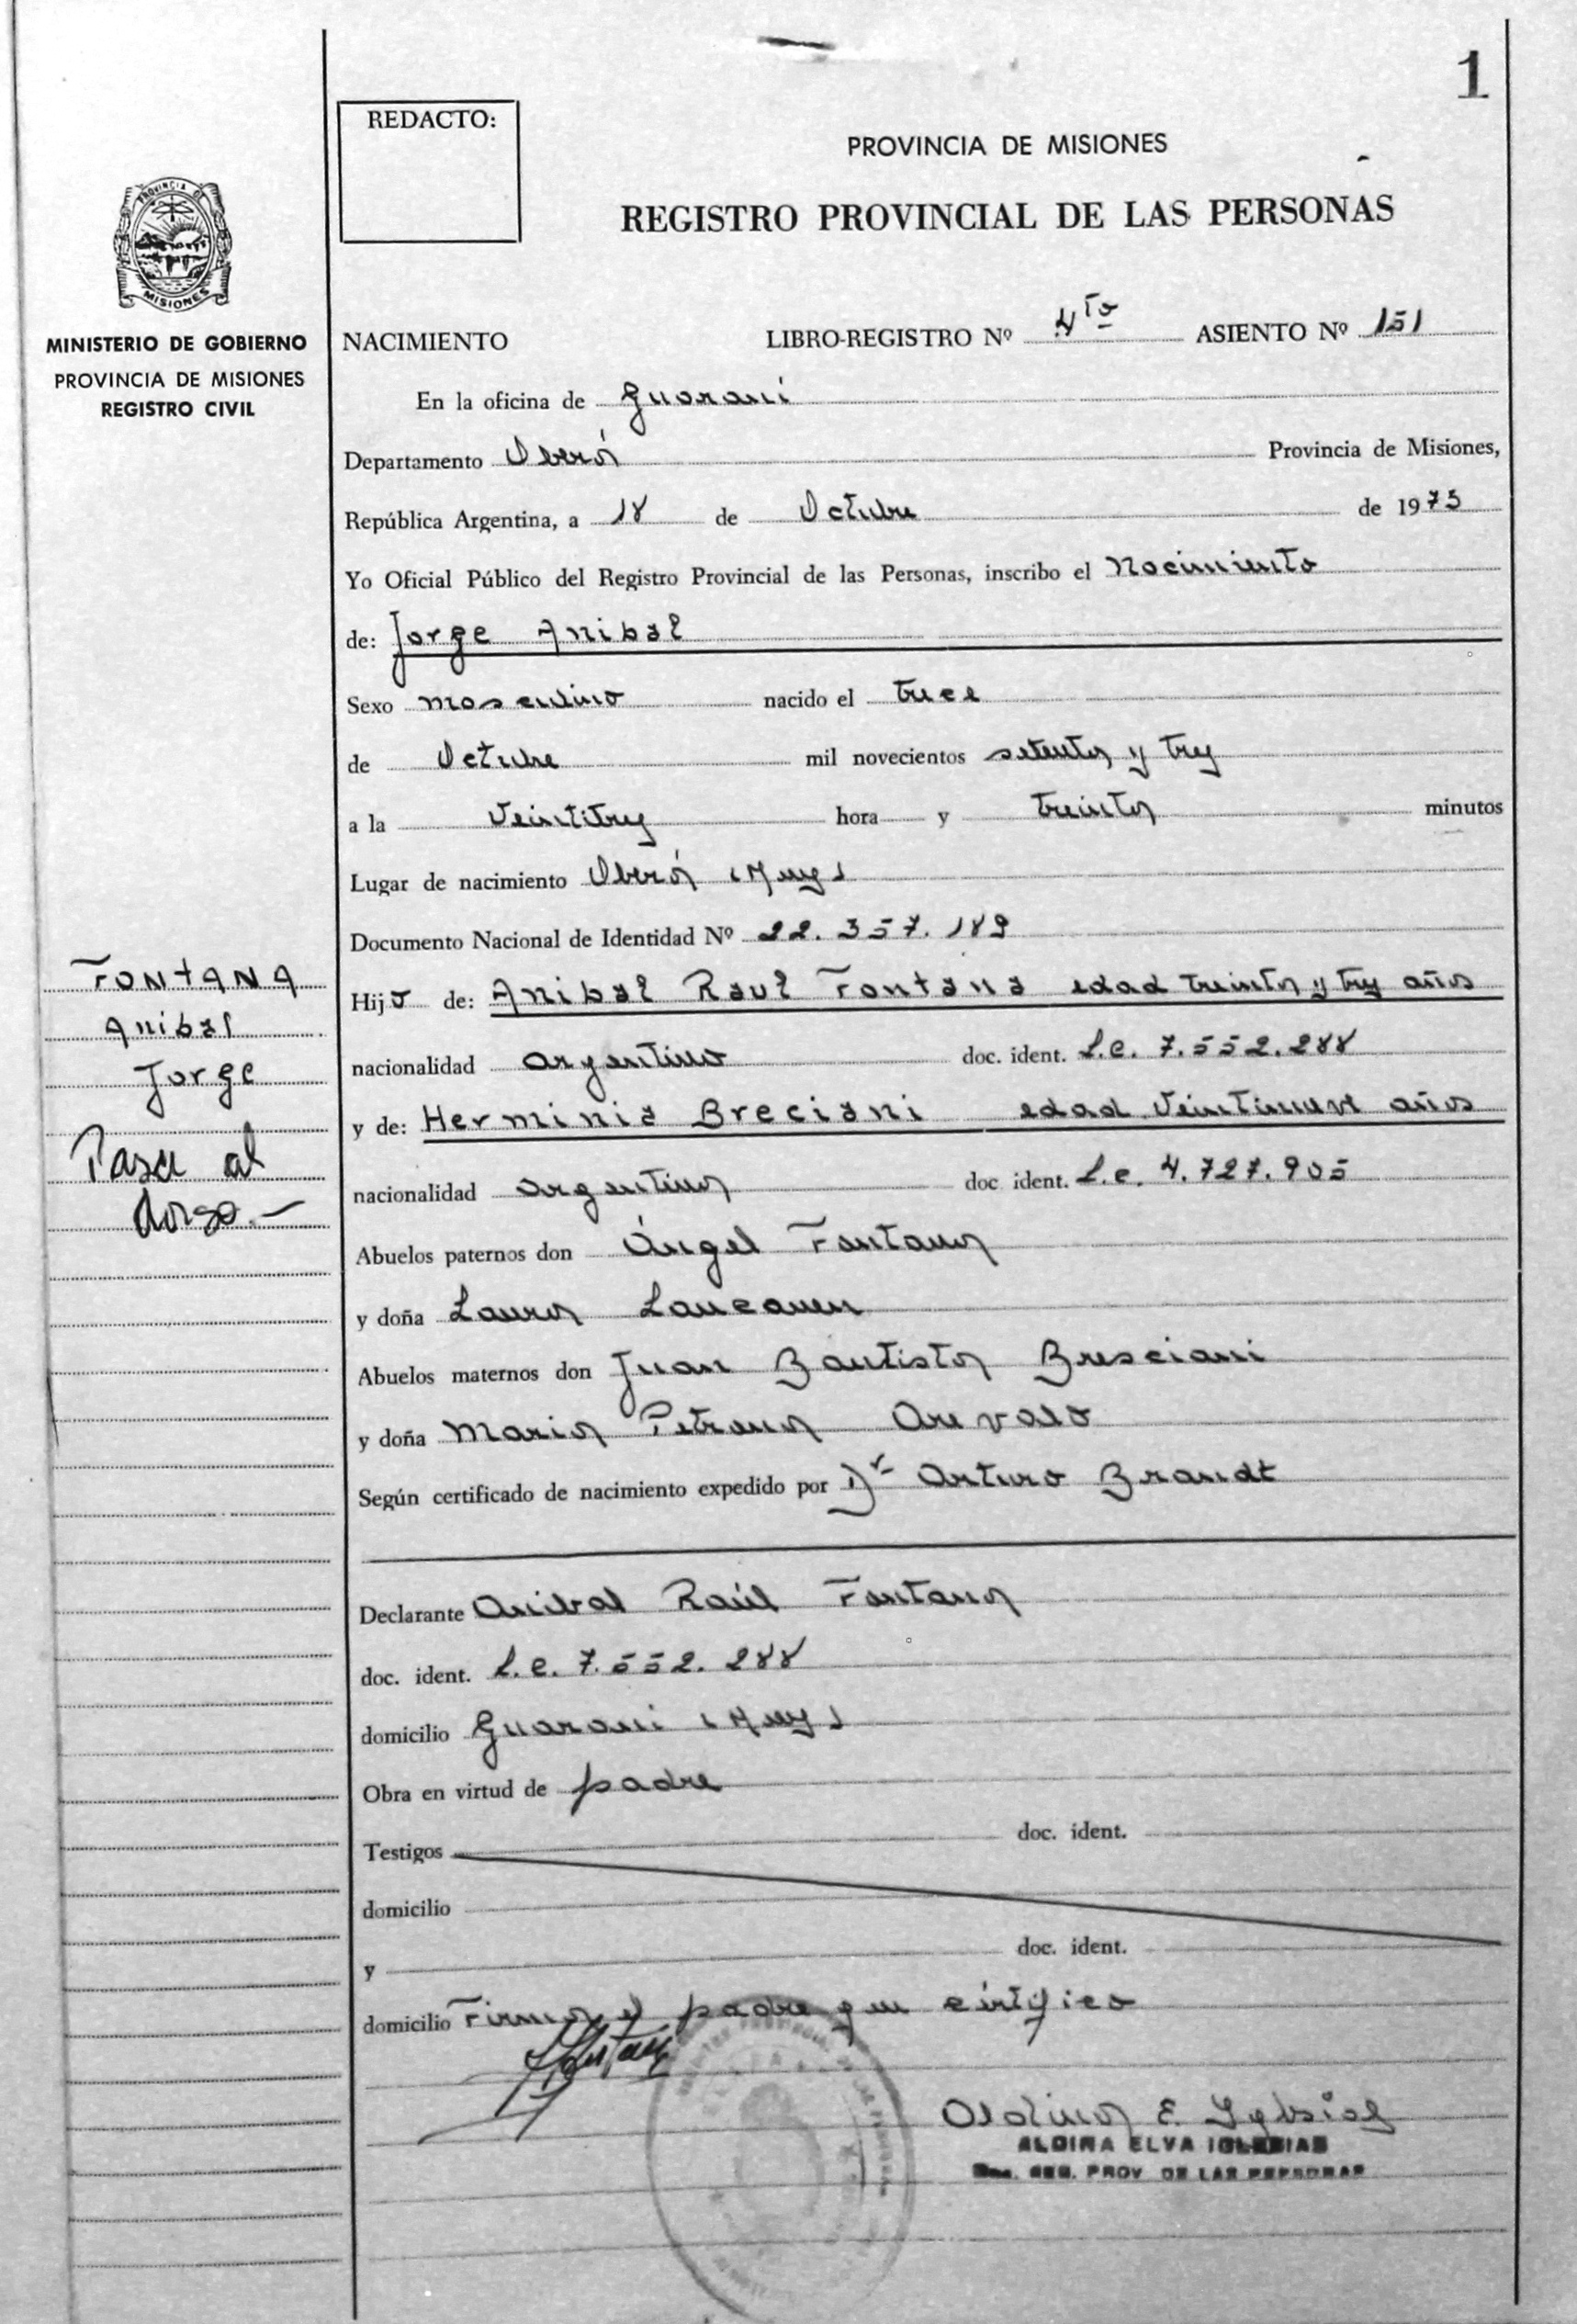 1
REDACTO:
PROVINCIA DE MISIONES
REGISTRO PROVINCIAL DE LAS PERSONAS
PROVINCIA DE
MISIONES
MINISTERIO DE GOBIERNO
PROVINCIA DE MISIONES
REGISTRO CIVIL
NACIMIENTO LIBRO-REGISTRO Nº 4to ASIENTO Nº 151
En la oficina de Guarani
Departamento Oberá Provincia de Misiones,
República Argentina, a 18 de Octubre de 1973
Yo Oficial Público del Registro Provincial de las Personas, inscribo el Nacimiento
de: Jorge Anibal
Sexo masculino nacido el trece
de Octubre mil novecientos setenta y tres
a la veintitres hora y treinta minutos
Lugar de nacimiento Oberá (Mnes)
Documento Nacional de Identidad Nº 22.357.189
FONTANA
Anibal
Jorge
Pasa al
dorso.-
Hijo de: Anibal Raul Fontana edad treinta y tres años
nacionalidad argentino doc. ident. L.e. 7.552.288
y de: Herminia Breciani edad veintinueve años
nacionalidad argentina doc ident. L.e. 4.727.905
Abuelos paternos don Ángel Fontana
y doña Laura
Abuelos maternos don Juan Bautista Bresciani
y doña Maria Petrona Arevalo
Según certificado de nacimiento expedido por Dr Arturo Brandt
Declarante Anibal Raúl Fontana
doc. ident. L.e. 7.552.288
domicilio Guarani (Mnes)
Obra en virtud de padre
Testigos doc. ident.
domicilio
y doc. ident.
domicilio Firma el padre que certifico
Aldina E. Iglesias
ALDINA ELVA IGLESIAS
REG. PROV DE LAS PERSONAS